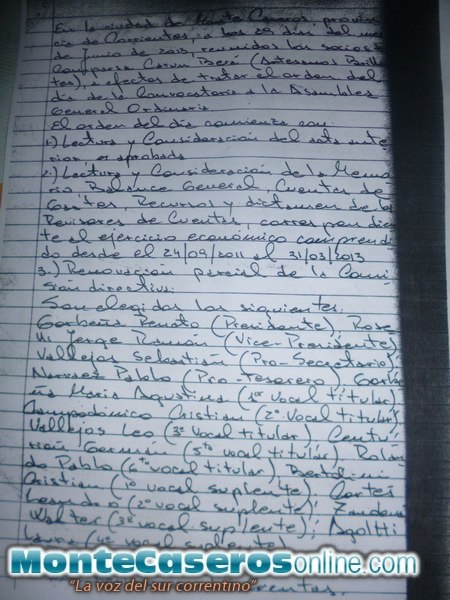 En la ciudad de Monte Caseros, provin-
cia de Corrientes, a los 28 días del mes
de Junio de 2013, reunidos los socios
comparsa Carun Berá (Antorchas Brillan-
tes), a efectos de tratar el orden del
día de la Convocatoria a la Asamblea
General Ordinaria
El orden del día comienza con:
1.) Lectura y Consideración del acta ante-
rior, es aprobada
2.) Lectura y Consideración de la Memo-
ria Balance General, Cuentas de
Gastos, Recursos y dictamen de los
Revisores de Cuentas, correspondien-
te al ejercicio económico comprendi-
do desde el 24/09/2011 al 31/03/2013
3.) Renovación parcial de la Comi-
sión directiva:
Son elegidos los siguientes:
Renato (Presidente),
Jorge Ramón (Vice-Presidente),
Vallejos Sebastián (Pro-Secretario),
Narvaez Pablo (Pro-Tesorero)
María Agustina (1er Vocal titular),
Campodónico Cristian (2º Vocal titular),
Vallejos Leo (3º Vocal titular)
Germán (5to vocal titular) Rolan-
do Pablo (6to vocal titular)
Cristian (1º vocal suplente), Cortes
Leandro (2º vocal suplente),
Walter (3º vocal suplente),
Laura (4º vocal suplente)
MonteCaserosonline.com
"La voz del sur correntino"